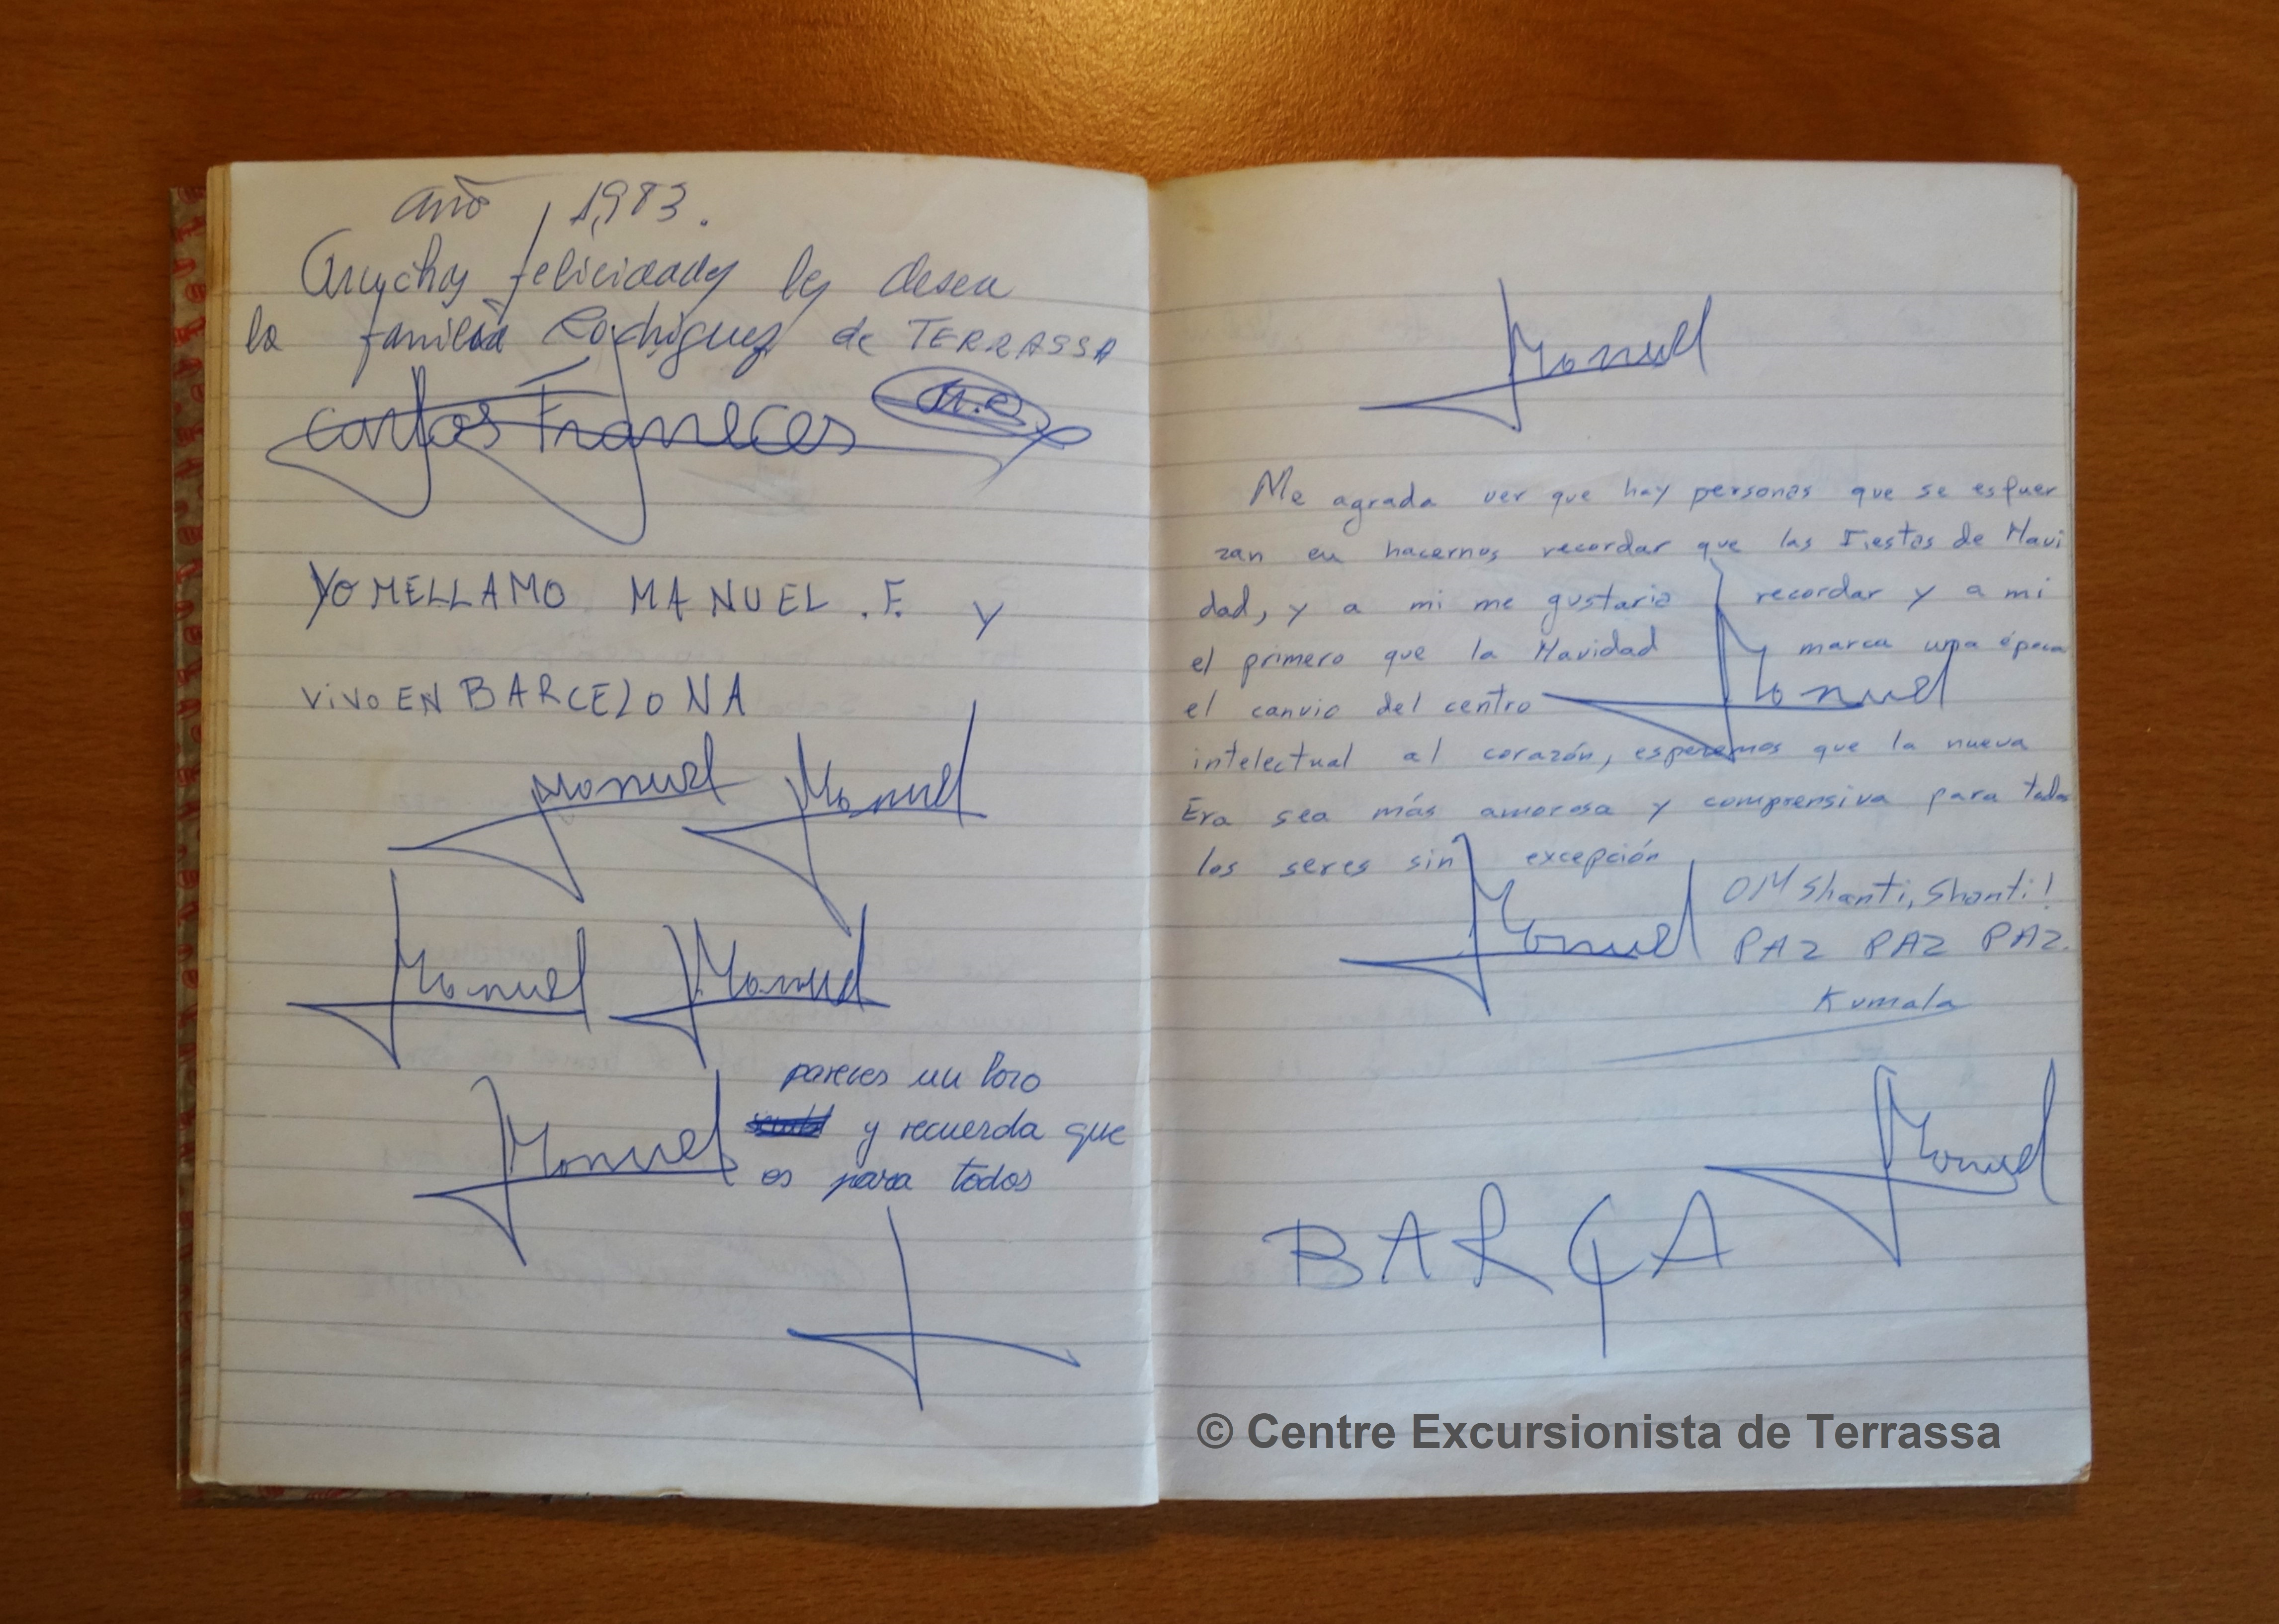 año 1,983.
Muchas felicidades les desea
la familia Rodriguez de TERRASSA
Carlos Franeces
YO ME LLAMO MANUEL . F. y
VIVO EN BARCELONA
Manuel Manuel
Manuel Manuel
Manuel
pareces un loro
y recuerda que
es para todos
Manuel
Me agrada ver que hay personas que se esfuer
zan en hacernos recordar que las Fiestas de Navi
dad, y a mi me gustaria recordar y a mi
el primero que la Navidad marca una época
el canvio del centro
Manuel
intelectual al corazón, esperemos que la nueva
Era sea más amorosa y comprensiva para todos
los seres sin excepción
Manuel
OM Shanti, Shanti!
PAZ PAZ PAZ.
Kumala
Manuel
BARÇA
© Centre Excursionista de Terrassa